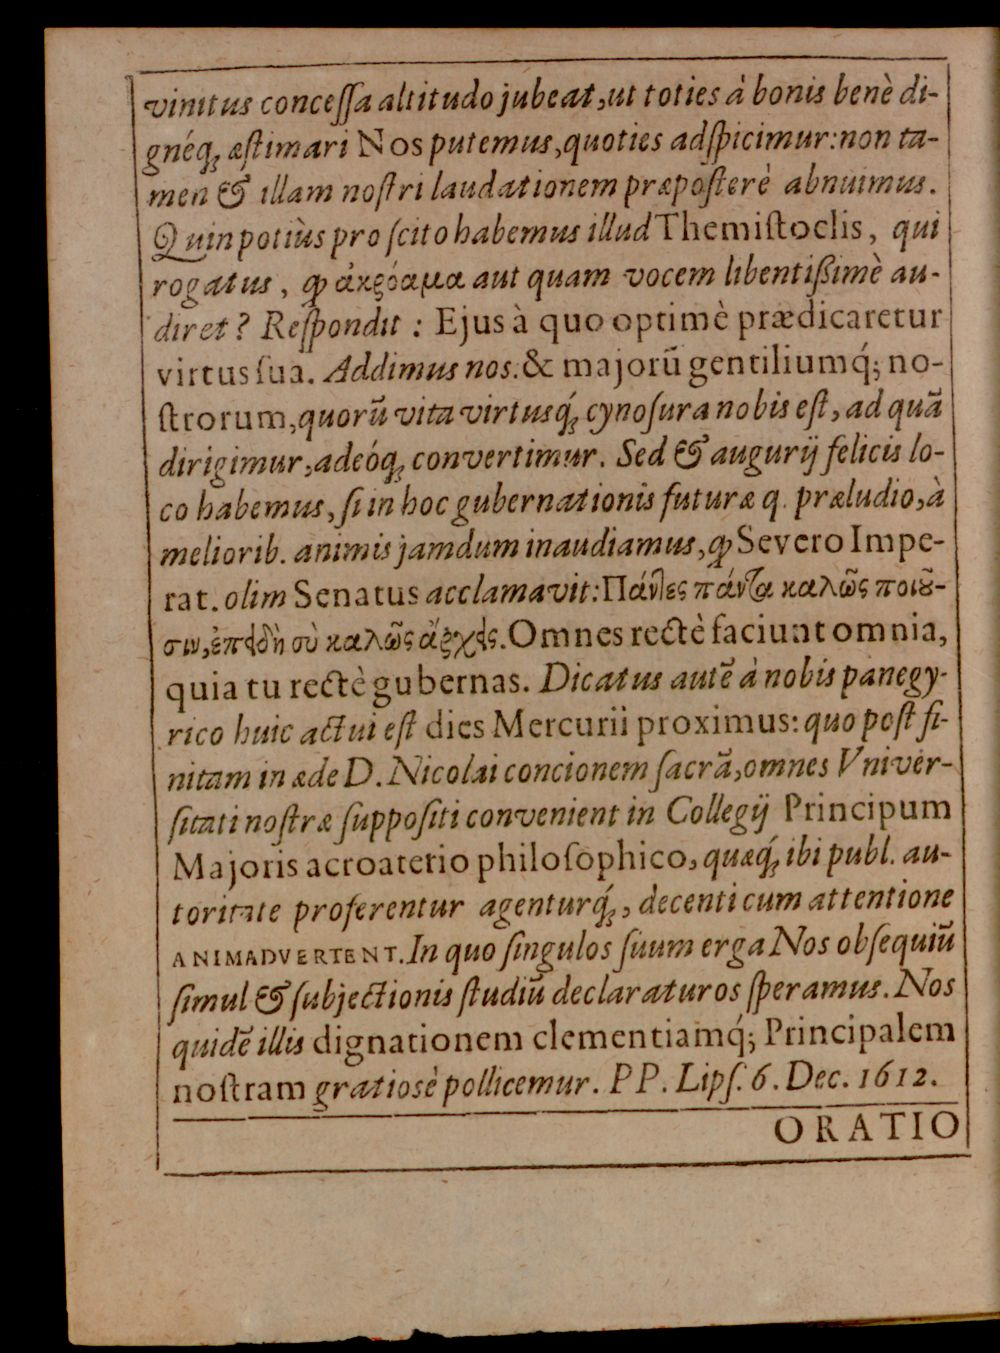 vinitus concessa altitudo jubeat, ut toties à bonis benè di-
gnéq́ꝫ æstimari Nos putemus, quoties adspicimur: non ta-
men & illam nostri laudationem præposterè abnuimus.
Quin potiùs pro scito habemus illud Themistoclis, qui
rogatus, ꝙ ἀκρόαμα aut quam vocem libentißimè au-
diret? Respondit: Ejus à quo optimè prædicaretur
virtus sua. Addimus nos. & majorũ gentiliumq́; no-
strorum, quorũ vita virtusq́ꝫ cynosura nobis est, ad quã
dirigimur, adeóq́ꝫ convertimur. Sed & augurij felicis lo-
co habemus, si in hoc gubernationis futuræ q. præludio, à
meliorib. animis jamdum inaudiamus, ꝙ Severo Impe-
rat. olim Senatus acclamavit: Πάντες πάντα καλῶς ποιȣ͂-
σιν, ἐπειδὴ σὺ καλῶς ἄρχεις. Omnes rectè faciunt omnia,
quia tu rectè gubernas. Dicatus autẽ à nobis panegy-
rico huic actui est dies Mercurii proximus: quo post fi-
nitam in æde D. Nicolai concionem sacrã, omnes Vniver-
sitati nostræ suppositi convenient in Collegij Principum
Majoris acroaterio philosophico, quæq́ꝫ ibi publ. au-
toritate proferentur agenturq́ꝫ, decenti cum attentione
ANIMADVERTENT. In quo singulos suum erga Nos obsequiũ
simul & subjectionis studiũ declaraturos speramus. Nos
quidẽ illis dignationem clementiamq́; Principalem
nostram gratiosè pollicemur. PP. Lips. 6. Dec. 1612.
ORATIO